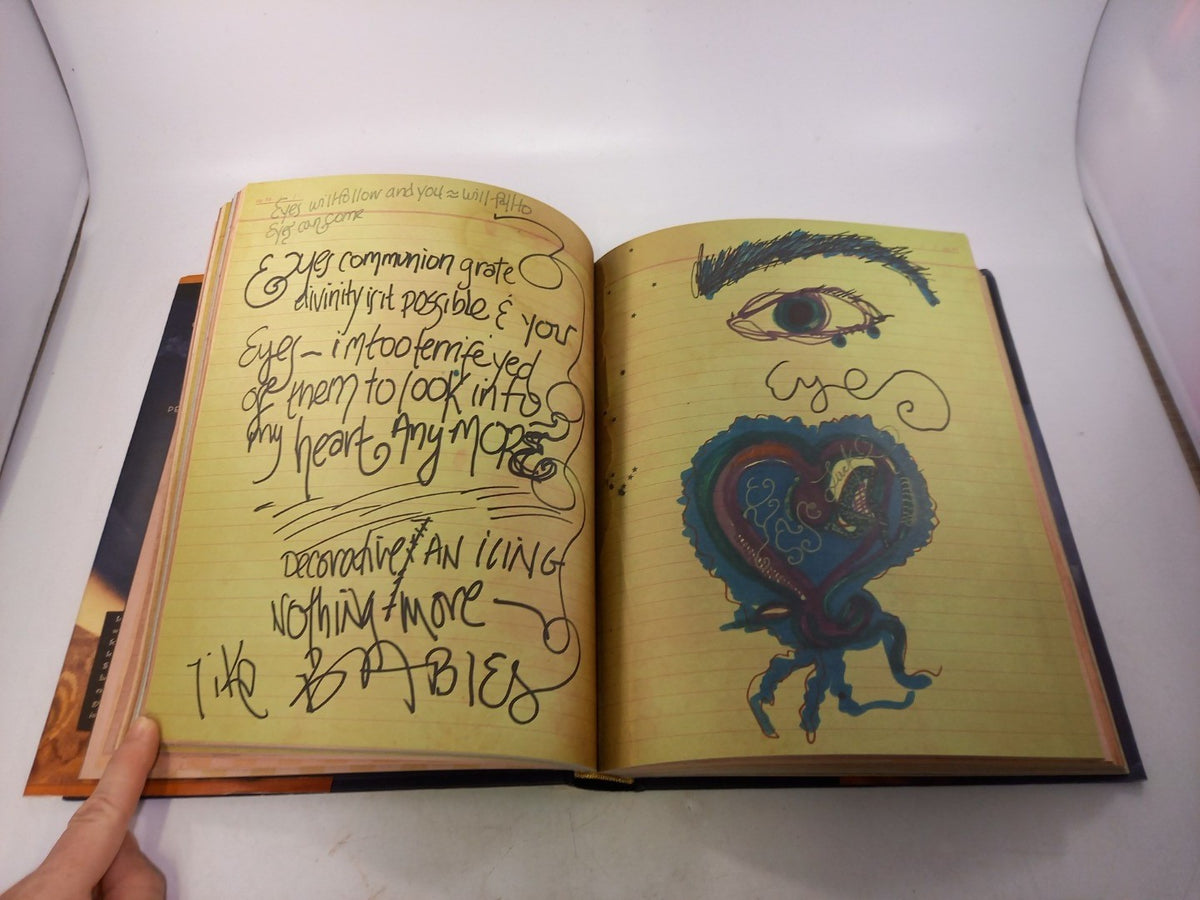 Eyes will follow and you ≈ will fall to
Eyes can come
Eyes communion grate
divinity is it possible & you
Eyes - im too terrifeyed
of them to look into
my heart Any MORE
DECORATIVE AN ICING
Nothing more
like BABIES
Eyes